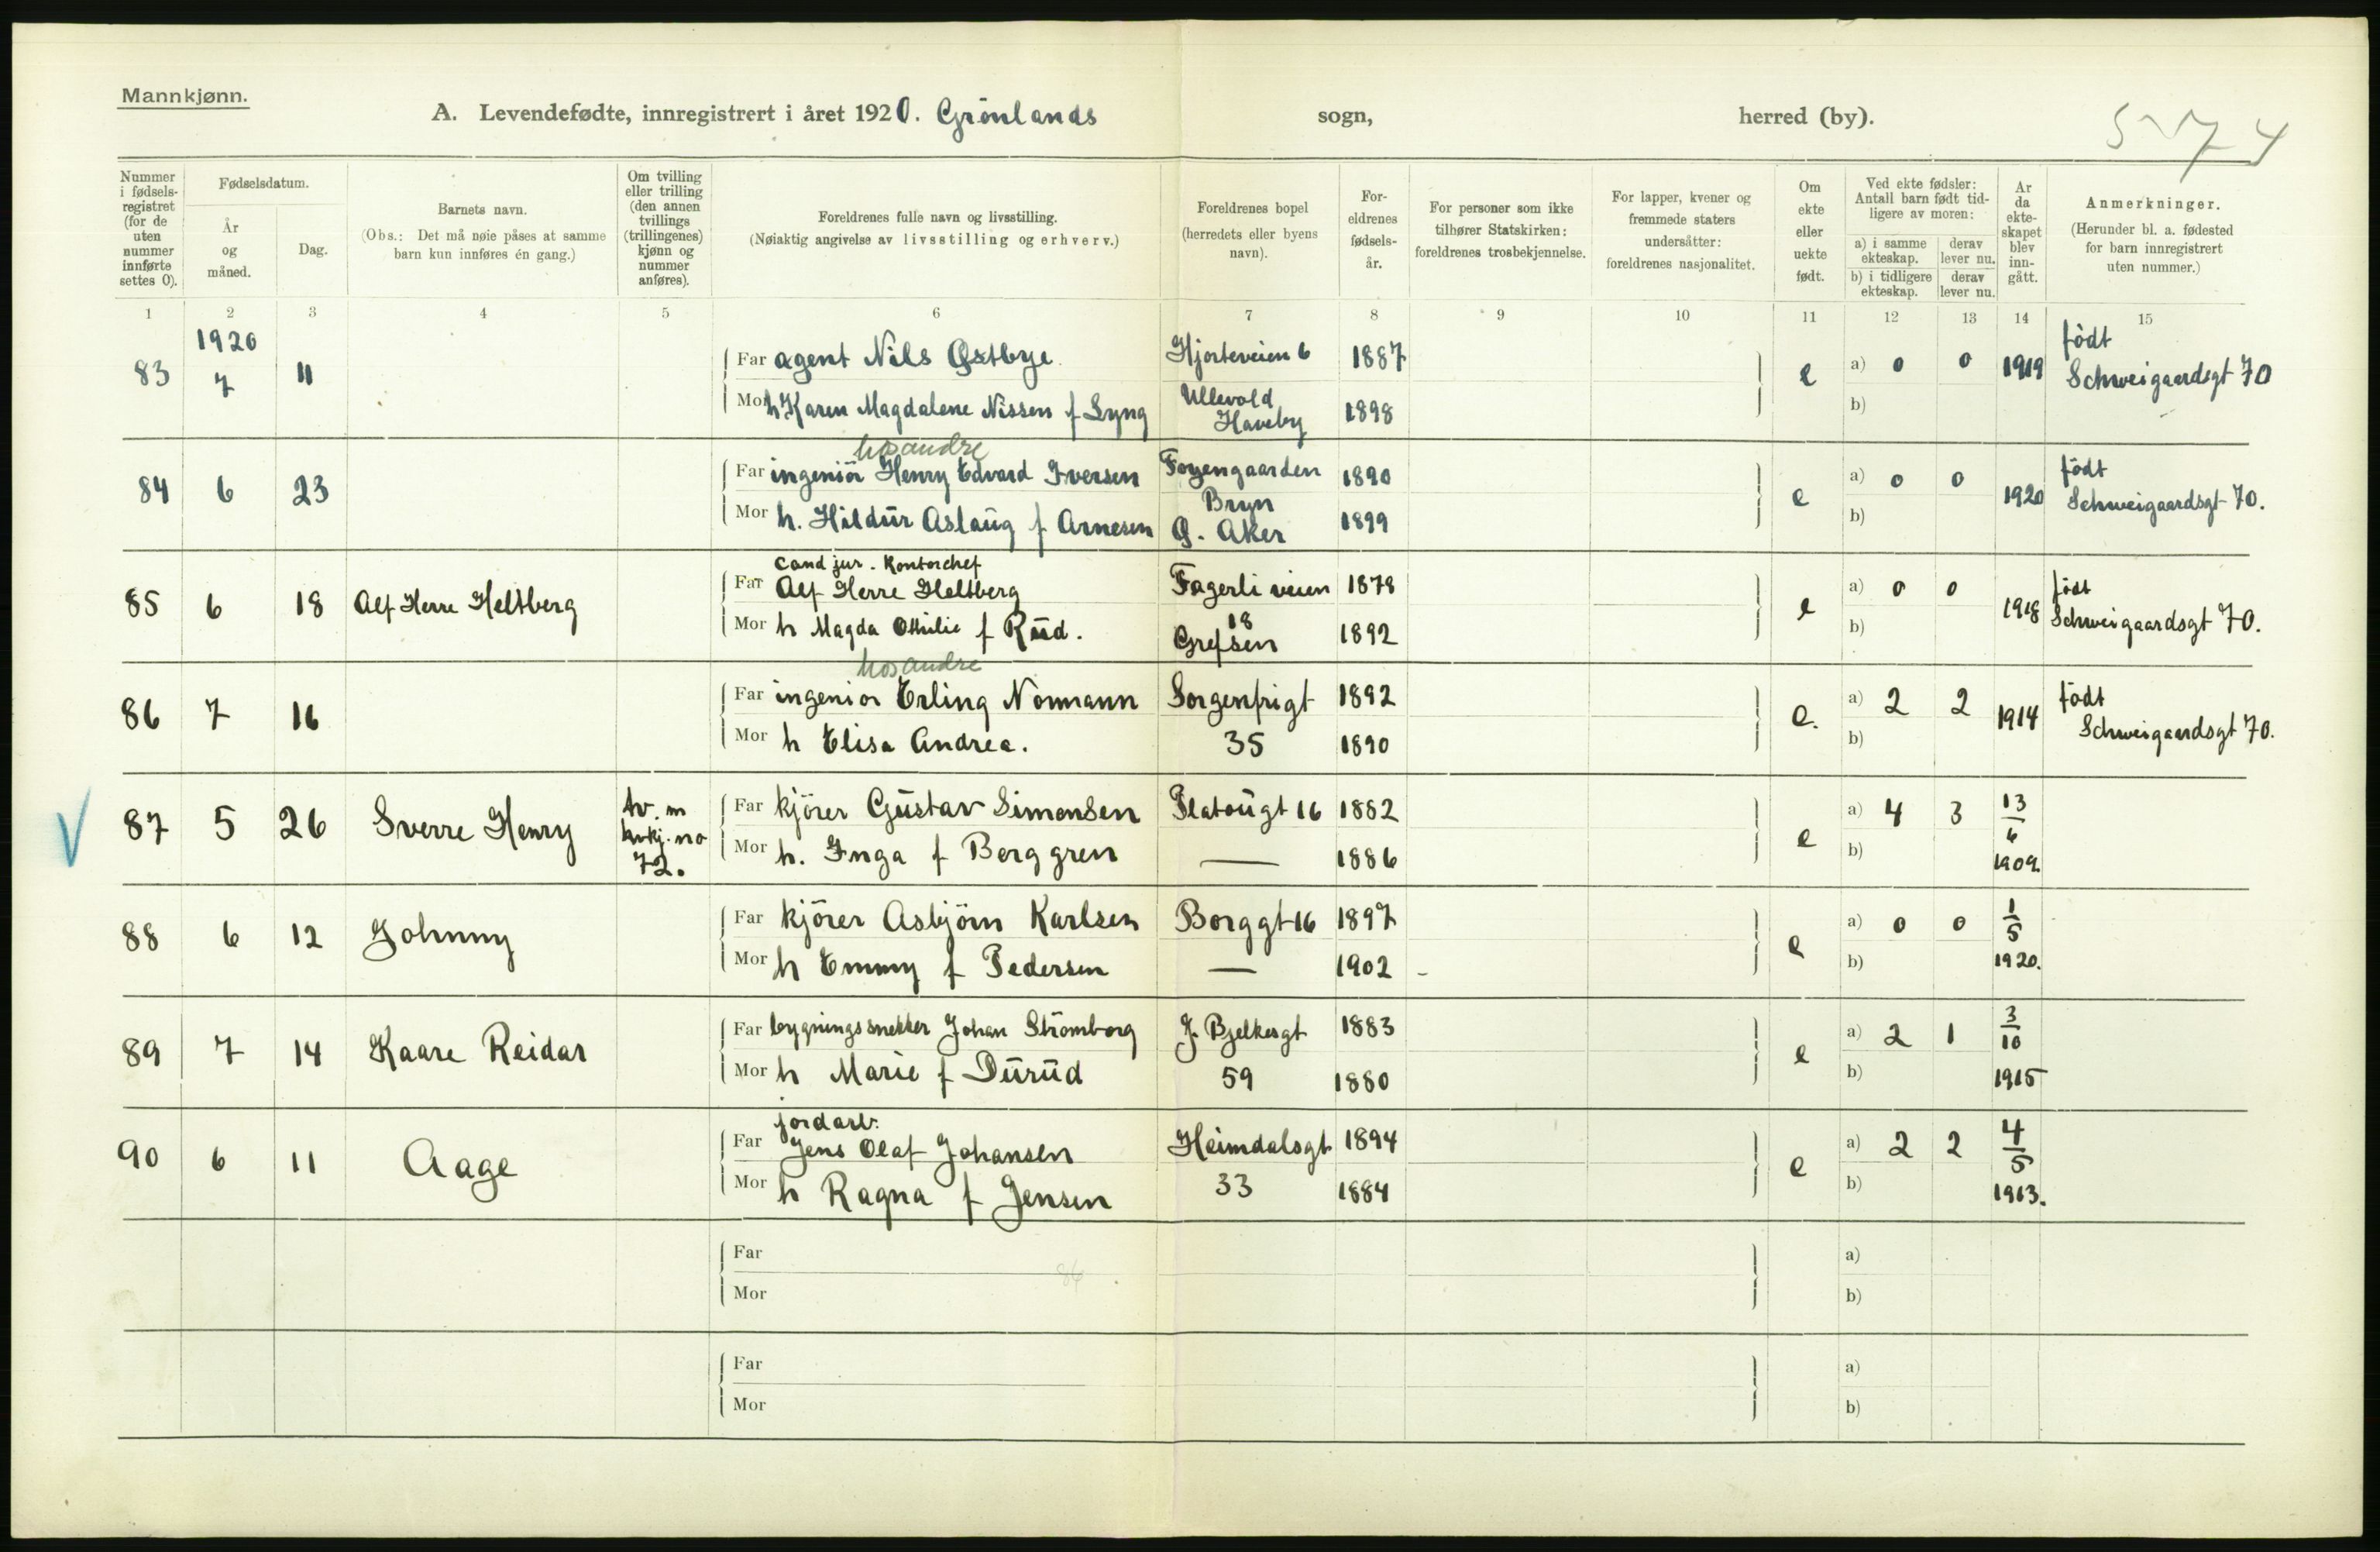 Mannkjønn.
A. Levendefødte, innregistrert i året 1920. Grönlands sogn, herred (by).
5
74
Nummer i fødsels- registret (for de uten nummer innførte settes 0).
Fødselsdatum.
År og måned.
Dag.
Barnets navn.
(Obs.: Det må nøie påses at samme barn kun innføres én gang.)
Om tvilling eller trilling (den annen tvillings (trillingenes) kjønn og nummer anføres).
Foreldrenes fulle navn og livsstilling.
(Nøiaktig angivelse av livsstilling og erhverv.)
Foreldrenes bopel (herredets eller byens navn).
For- eldrenes fødsels- år.
For personer som ikke tilhører Statskirken: foreldrenes trosbekjennelse.
For lapper, kvener og fremmede staters undersåtter: foreldrenes nasjonalitet.
Om ekte eller uekte født.
Ved ekte fødsler: Antall barn født tid- ligere av moren:
a) i samme ekteskap.
derav lever nu.
b) i tidligere ekteskap.
derav lever nu.
År da ekte- skapet blev inn- gått.
Anmerkninger.
(Herunder bl. a. fødested for barn innregistrert uten nummer.)
1 2 3 4 5 6 7 8 9 10 11 12 13 14 15
1920
83 7 11 Far agent Nils Østbye Hjorteveien 6 1887 e a) 0 0 1919 födt Schweigaardsgt 70
Mor h Karen Magdalene Nissen f Lyng Ullevold Haveby 1898 b)
hos andre
84 6 23 Far ingeniör Henry Edvard Iversen Foyengaarden 1890 e a) 0 0 1920 födt Schweigaardsgt 70.
Bryn
Mor h. Hildur Aslaug f Arnesen Ö. Aker 1899 b)
cand jur. Kontorchef
85 6 18 Alf Herre Heltberg Far Alf Herre Heltberg Fagerliveien 1878 e a) 0 0 1918 födt Schweigaardsgt 70.
18
Mor h Magda Othilie f Ruud. Grefsen 1892 b)
hos andre
86 7 16 Far ingeniör Erling Normann Sorgenfrigt 1892 e. a) 2 2 1914 födt Schweigaardsgt 70.
Mor h Elisa Andrea. 35 1890 b)
V 87 5 26 Sverre Henry tv. m kvkj. no 72. Far kjörer Gustav Simensen Platougt 16 1882 e a) 4 3 13/6 1909.
Mor h. Inga f Berggren — 1886 b)
88 6 12 Johnny Far kjörer Asbjörn Karlsen Borggt 16 1897 e a) 0 0 1/5 1920.
Mor h Emmy f Pedersen — 1902 - b)
89 7 14 Kaare Reidar Far bygningssnekker Johan Strömborg J. Bjelkesgt 1883 e a) 2 1 3/10 1915
Mor h Marie f Durud 59 1880 b)
jordarb.
90 6 11 Aage Far Jens Olaf Johansen Heimdalsgt 1894 e a) 2 2 4/5 1913.
Mor h Ragna f Jensen 33 1884 b)
Far a)
86
Mor b)
Far a)
Mor b)